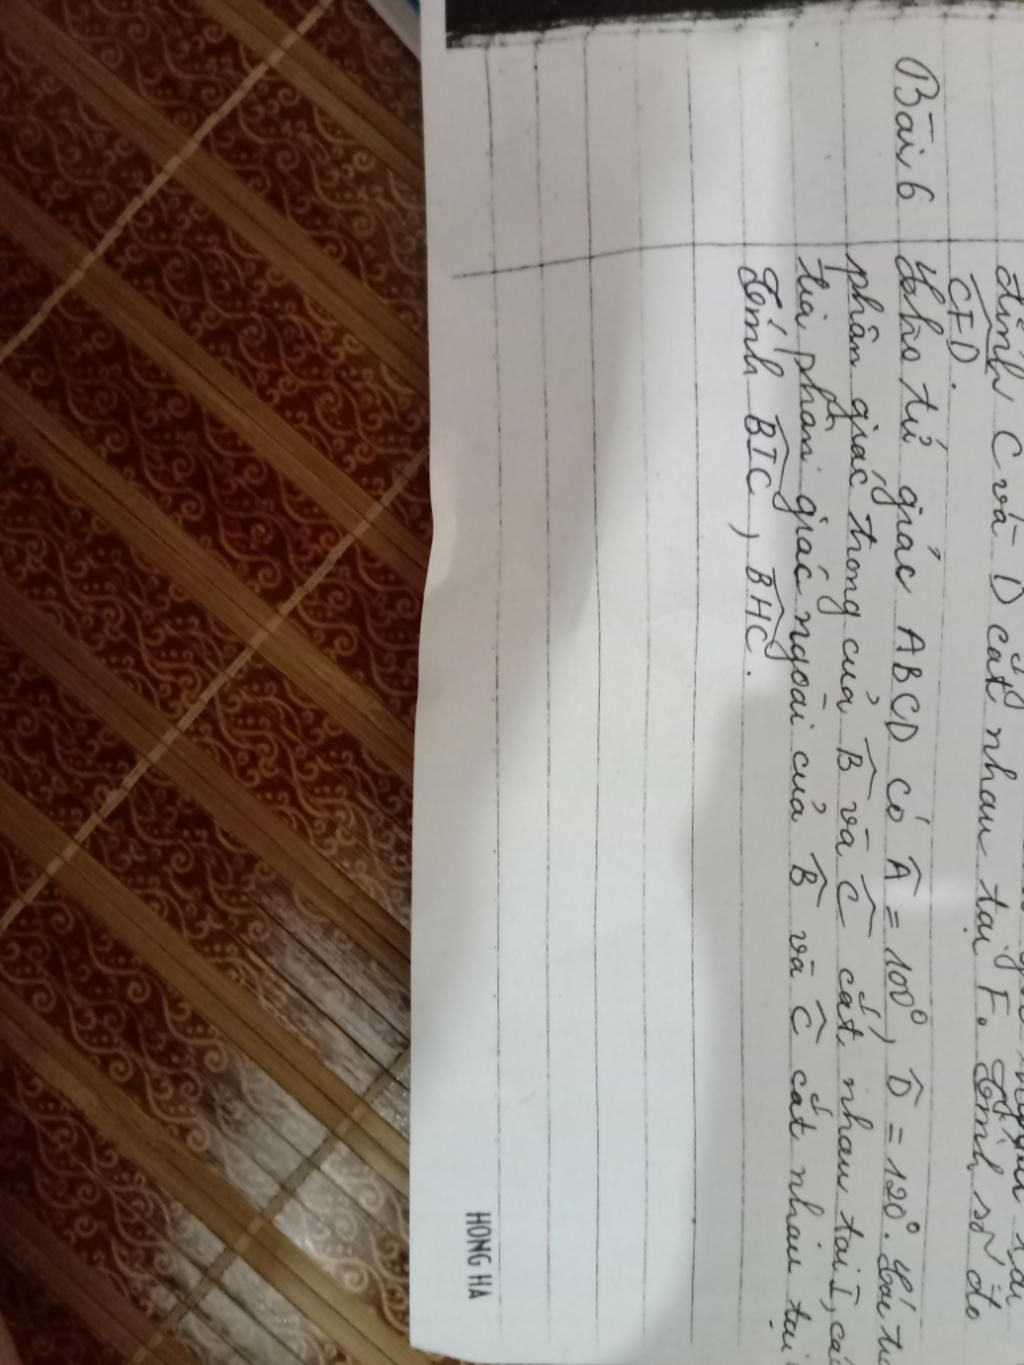 đỉnh C và D cắt nhau tại F. Tính số đo
CED.
Bài 6 Cho tứ giác ABCD có Â = 100°, D̂ = 120°. Các
phân giác trong của B̂ và Ĉ cắt nhau tại I, các
tia phân giác ngoài của B̂ và Ĉ cắt nhau tại
Tính BIC, BHC.
HONG HA